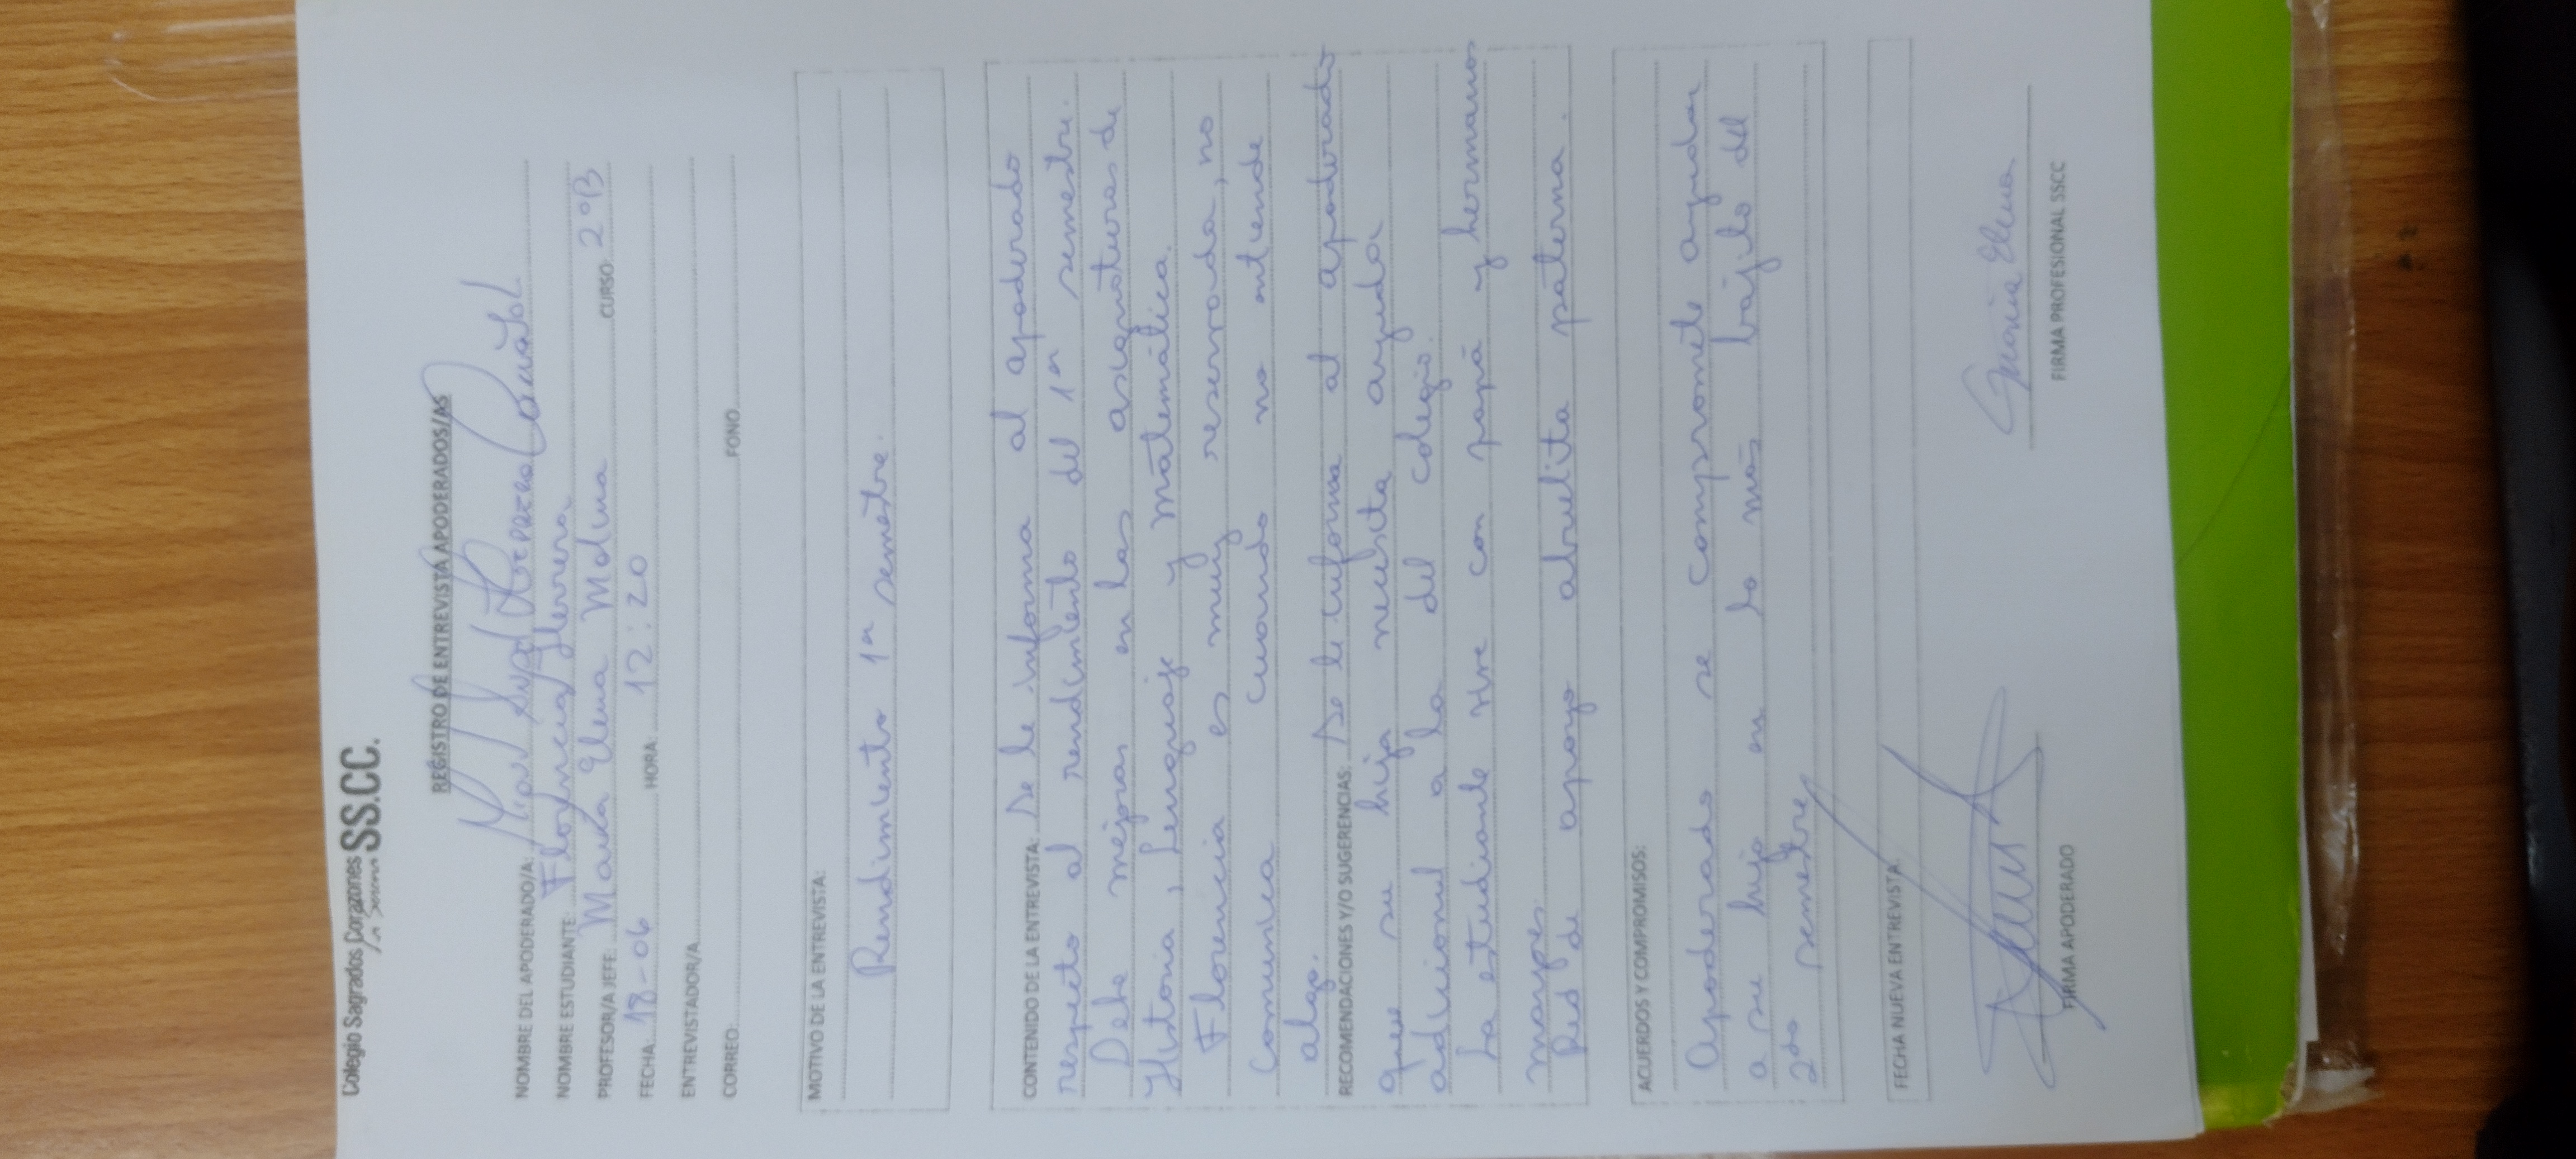 Colegio Sagrados Corazones SS.CC.
REGISTRO DE ENTREVISTA APODERADOS/AS
NOMBRE DEL APODERADO/A: Herrera
NOMBRE ESTUDIANTE: Florencia Herrera
PROFESOR/A JEFE: María Elena Molina CURSO: 2ºB
FECHA: 18-06 HORA: 12:20
ENTREVISTADOR/A
CORREO: FONO
MOTIVO DE LA ENTREVISTA:
Rendimiento 1er semestre.
CONTENIDO DE LA ENTREVISTA: Se le informa al apoderado
respecto al rendimiento del 1er semestre.
Debe mejorar en las asignaturas de
Historia, Lenguaje y Matemática.
Florencia es muy reservada, no
comunica cuando no entiende
algo.
RECOMENDACIONES Y/O SUGERENCIAS: Se le informa al apoderado
que su hija necesita ayuda
adicional a la del colegio.
La estudiante vive con papá y hermanos
mayores.
Red de apoyo abuelita paterna.
ACUERDOS Y COMPROMISOS:
Apoderado se compromete ayudar
a su hija en lo más bajito del
2do semestre
FECHA NUEVA ENTREVISTA:
María Elena
FIRMA APODERADO FIRMA PROFESIONAL SSCC